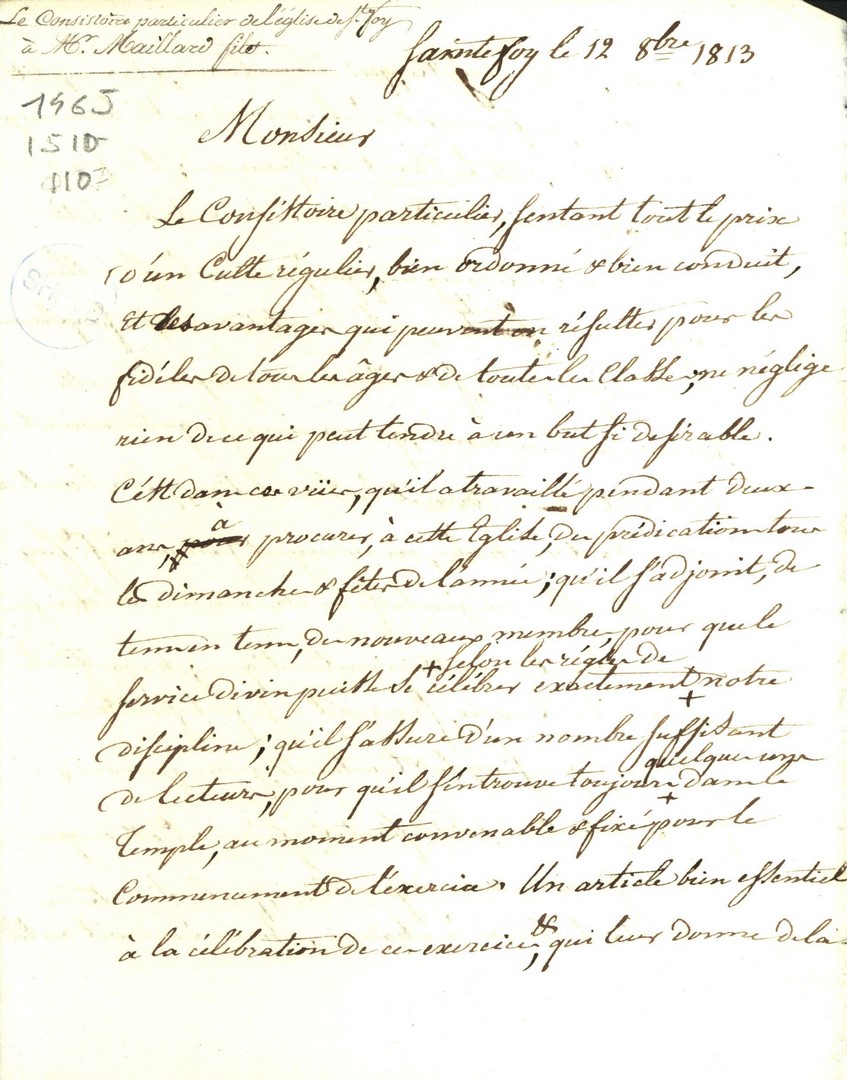 Le Consistoire particulier de l'église de Ste foy
à Mr. Maillard fils.
Sainte foy le 12 8bre 1813
1965
1510
110
Monsieur
Le Consistoire particulier, sentant tout le prix
d'un Culte régulier, bien ordonné & bien conduit,
Et des avantages qui peuvent en résulter pour les
fidèles de tous les âges & de toutes les Classes; ne néglige
rien de ce qui peut tendre à un but si désirable.
C'est dans ces vües, qu'il a travaillé pendant deux
ans, pour à procurer, à cette Eglise, des prédications tous
les dimanches & fêtes de l'année; qu'il s'adjoint, de
tems en tems, de nouveaux membres, pour que le
+ selon les règles de
service divin puisse se célébrer exactement + notre
discipline; qu'il s'assure d'un nombre suffisant
quelques uns
de lecteurs, pour qu'il s'en trouve toujours + dans le
Temple, au moment convenable & fixé pour le
Commencement de l'éxercice. Un article bien essentiel
à la célébration de ces exercices, & qui leur donne de la